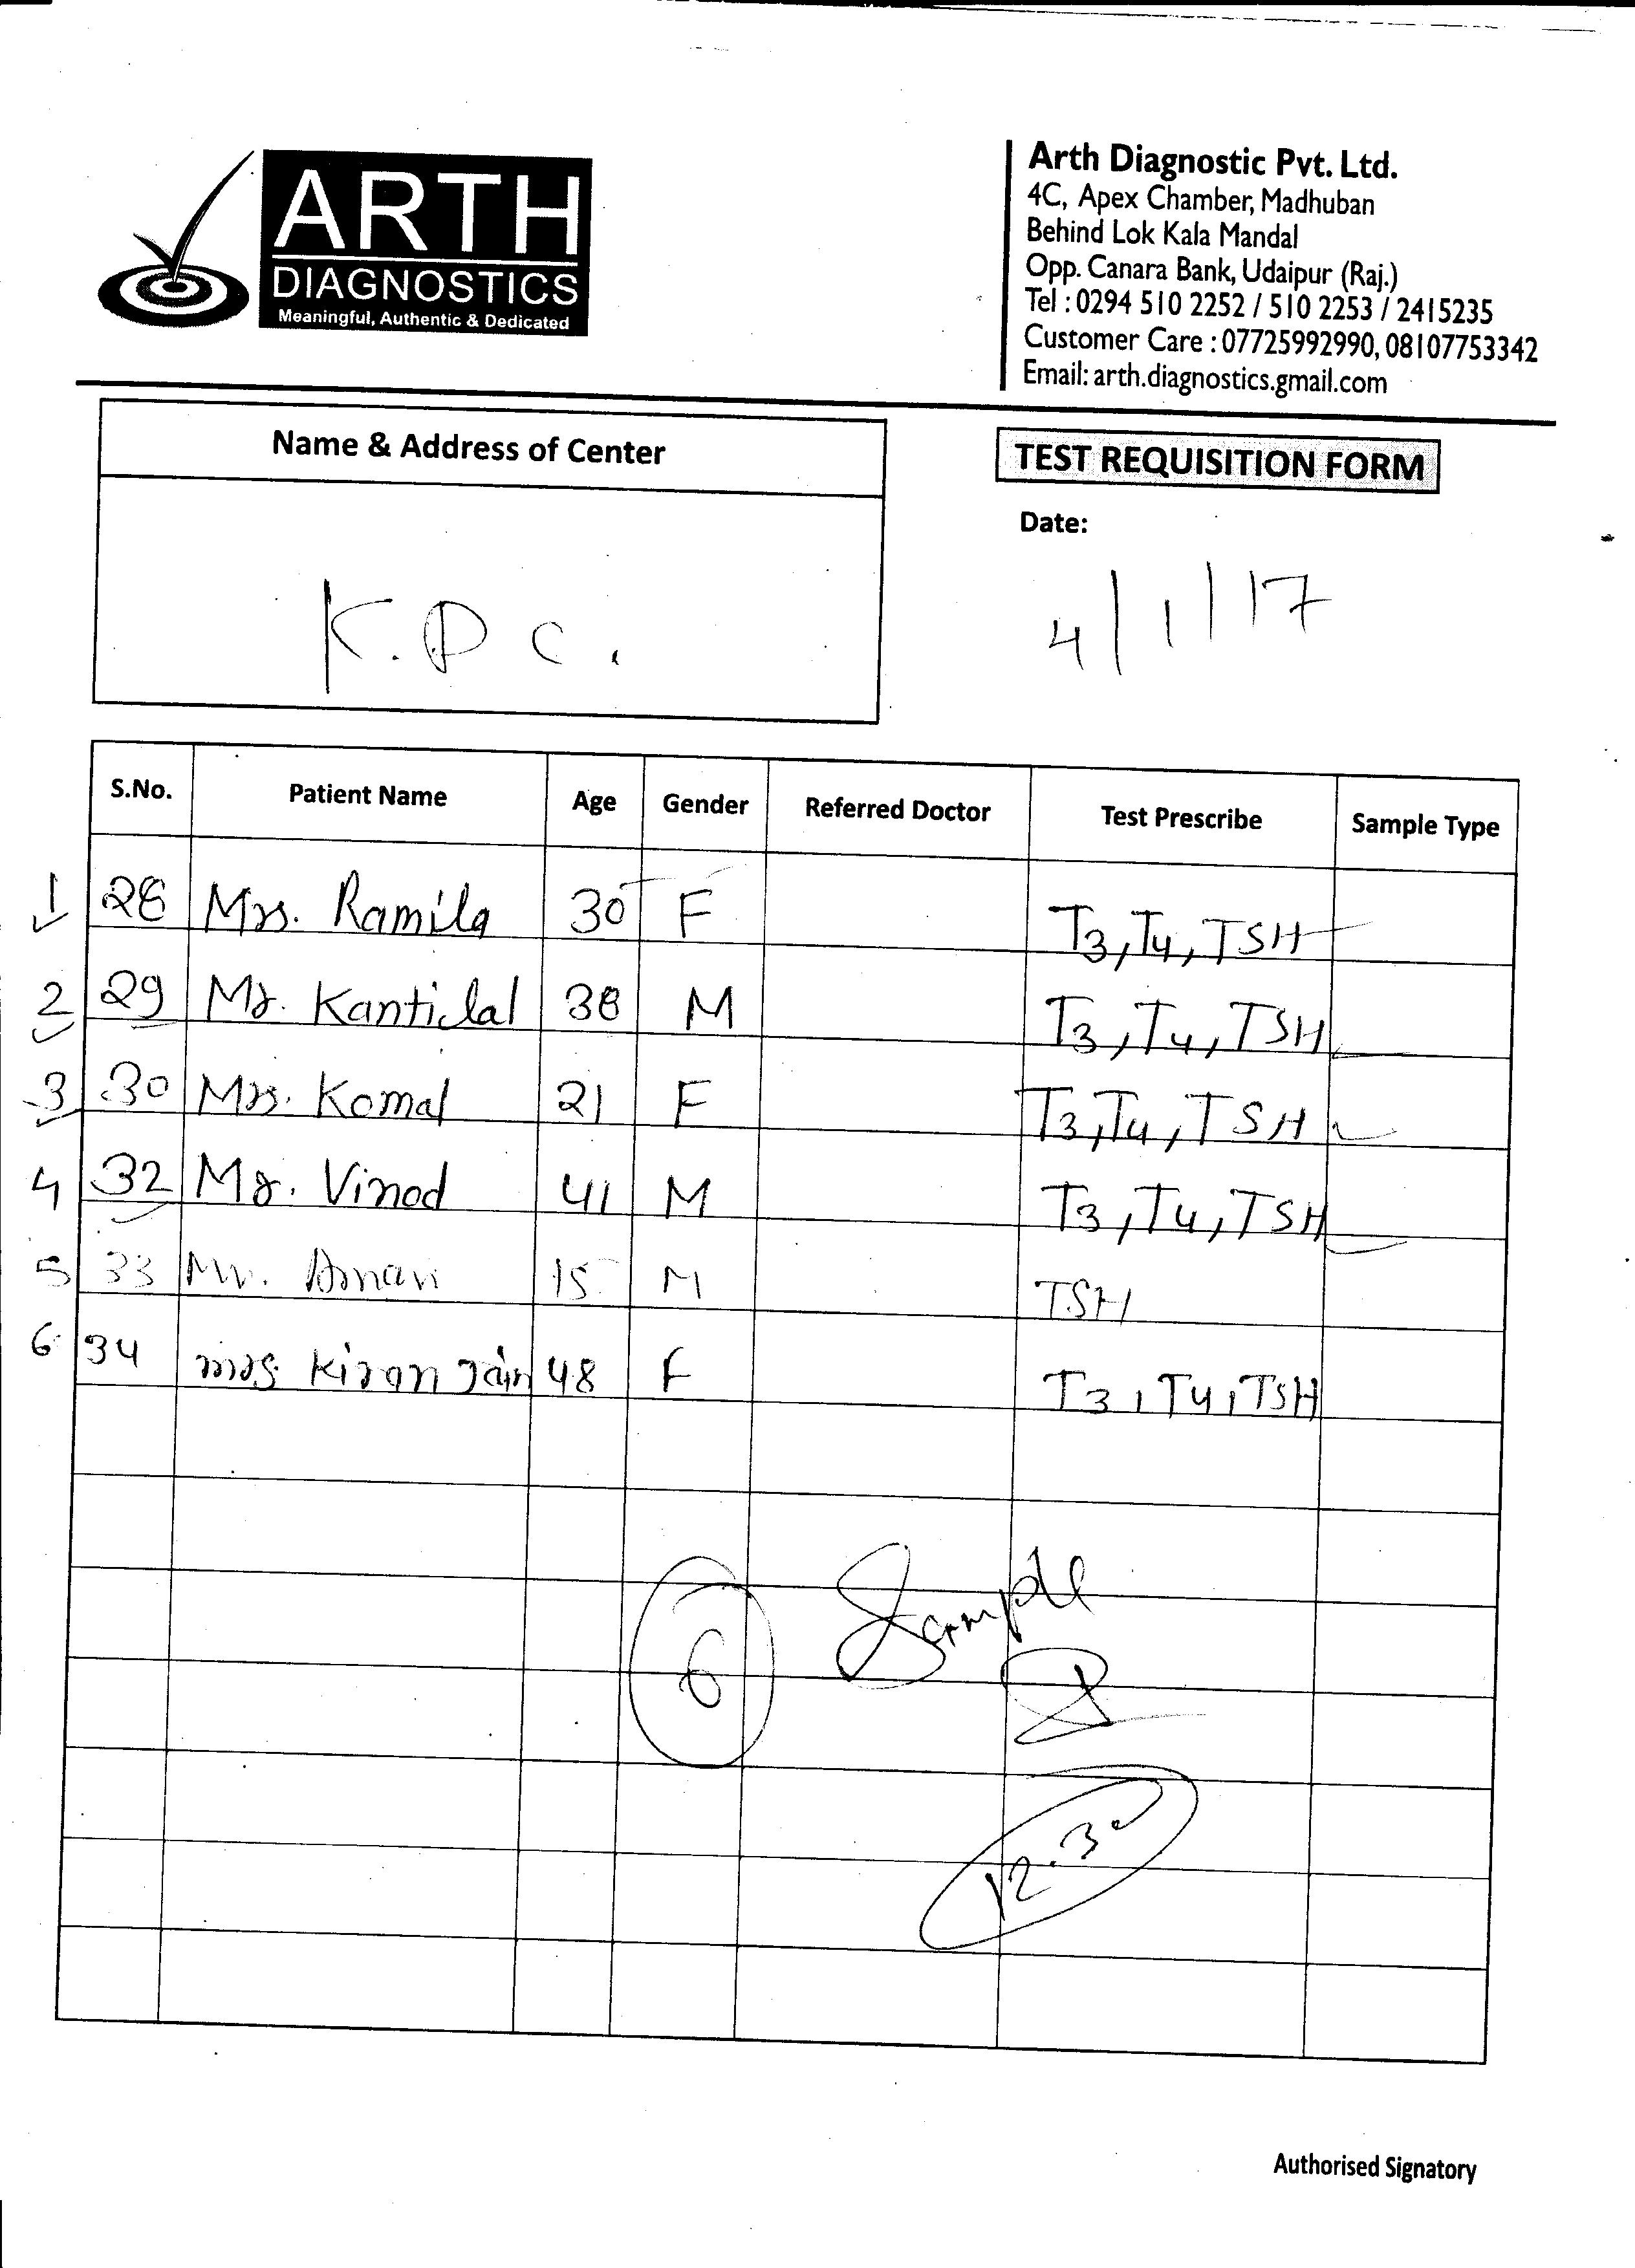 ARTH
DIAGNOSTICS
Meaningful, Authentic & Dedicated
Arth Diagnostic Pvt. Ltd.
4C, Apex Chamber, Madhuban
Behind Lok Kala Mandal
Opp. Canara Bank, Udaipur (Raj.)
Tel : 0294 510 2252 / 510 2253 / 2415235
Customer Care : 07725992990, 08107753342
Email: arth.diagnostics.gmail.com
Name & Address of Center
K.P.C.
TEST REQUISITION FORM
Date:
4/1/17
S.No. Patient Name Age Gender Referred Doctor Test Prescribe Sample Type
1 28 Mrs. Ramila 30 F T3, T4, TSH
2 29 Mr. Kantilal 38 M T3, T4, TSH
3 30 Mrs. Komal 21 F T3, T4, TSH
4 32 Mr. Vinod 41 M T3, T4, TSH
5 33 Mr. Aman 15 M TSH
6 34 mrs. Kiran Jain 48 F T3, T4, TSH
6 Sample
12.30
Authorised Signatory